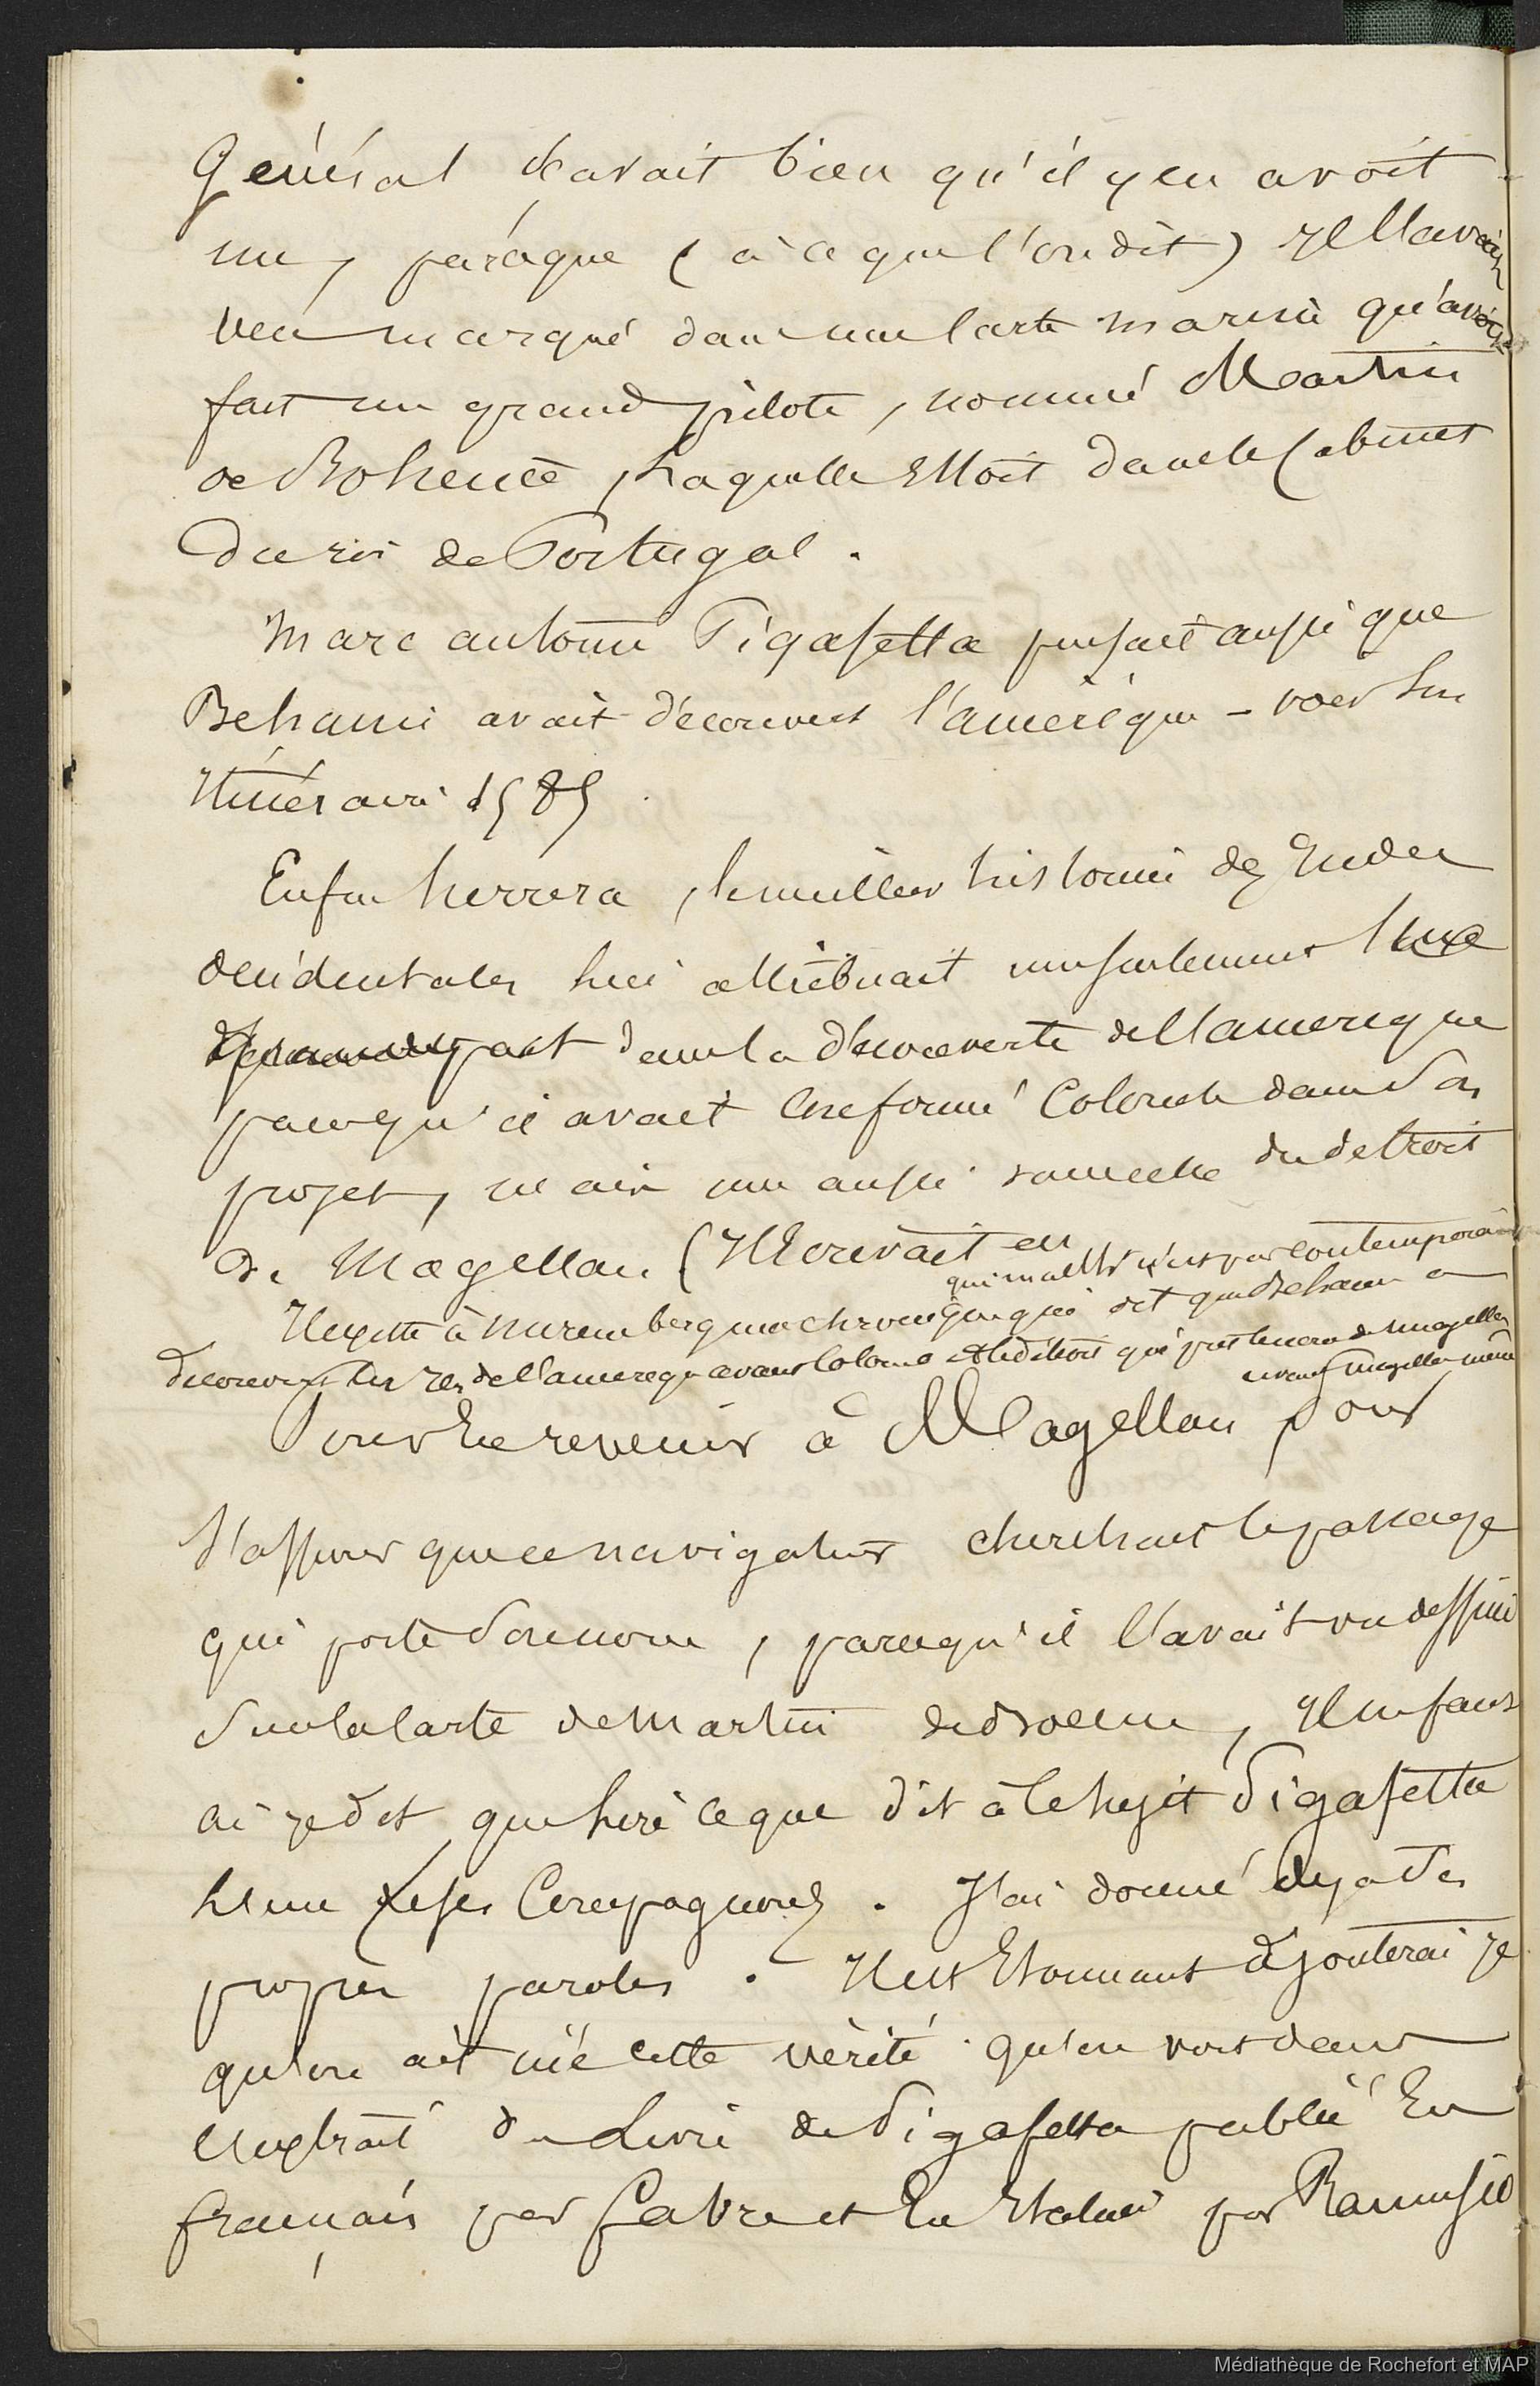 Général scavait bien qu'il y en avoit
un, parceque (à ce que l'on dit) Il l'avoit
veu marqué dans une carte marine qu'avoit
fait un grand pilote, nommé Martin
de Boheme, Laquelle Estoit dans le Cabinet
du roi de Portugal.
Marc antoine Pigafetta pensait aussi que
Behaim avait découvert l'amérique - voir son
Itinéraire 1585
Enfin herrera, le meilleur historien des Indes
occidentales lui attribuait non seulement
part dans la découverte de l'amerique
parcequ'il avait confirmé Colomb dans son
projet, mais aussi du detroit
de Magellan. (Il Ecrivait en
qui n'est pas contemporain
Il existe à nuremberg une chronique qui dit que Behaim a
découvert les iles de l'amerique avant Colomb et le détroit qui prit le nom de magellan
avant magellan même
Pour En revenir à Magellan pour
s'assurer que ce navigateur cherchait le passage
qui porte son nom, parcequ'il l'avait vu dessiné
sur la carte de Martin de Boeme, Il ne faut
ai je dit que lire ce que dit à ce sujet Pigafetta
L'un de ses Compagnons. J'ai donné deja ses
propres paroles. Il est Etonnant ajouterai je
qu'on ait nié cette vérité qu'on voit dans
l'extrait du Livre de Pigafetta publié En
français par fabre et En Italien par Ramusio
Médiathèque de Rochefort et MAP